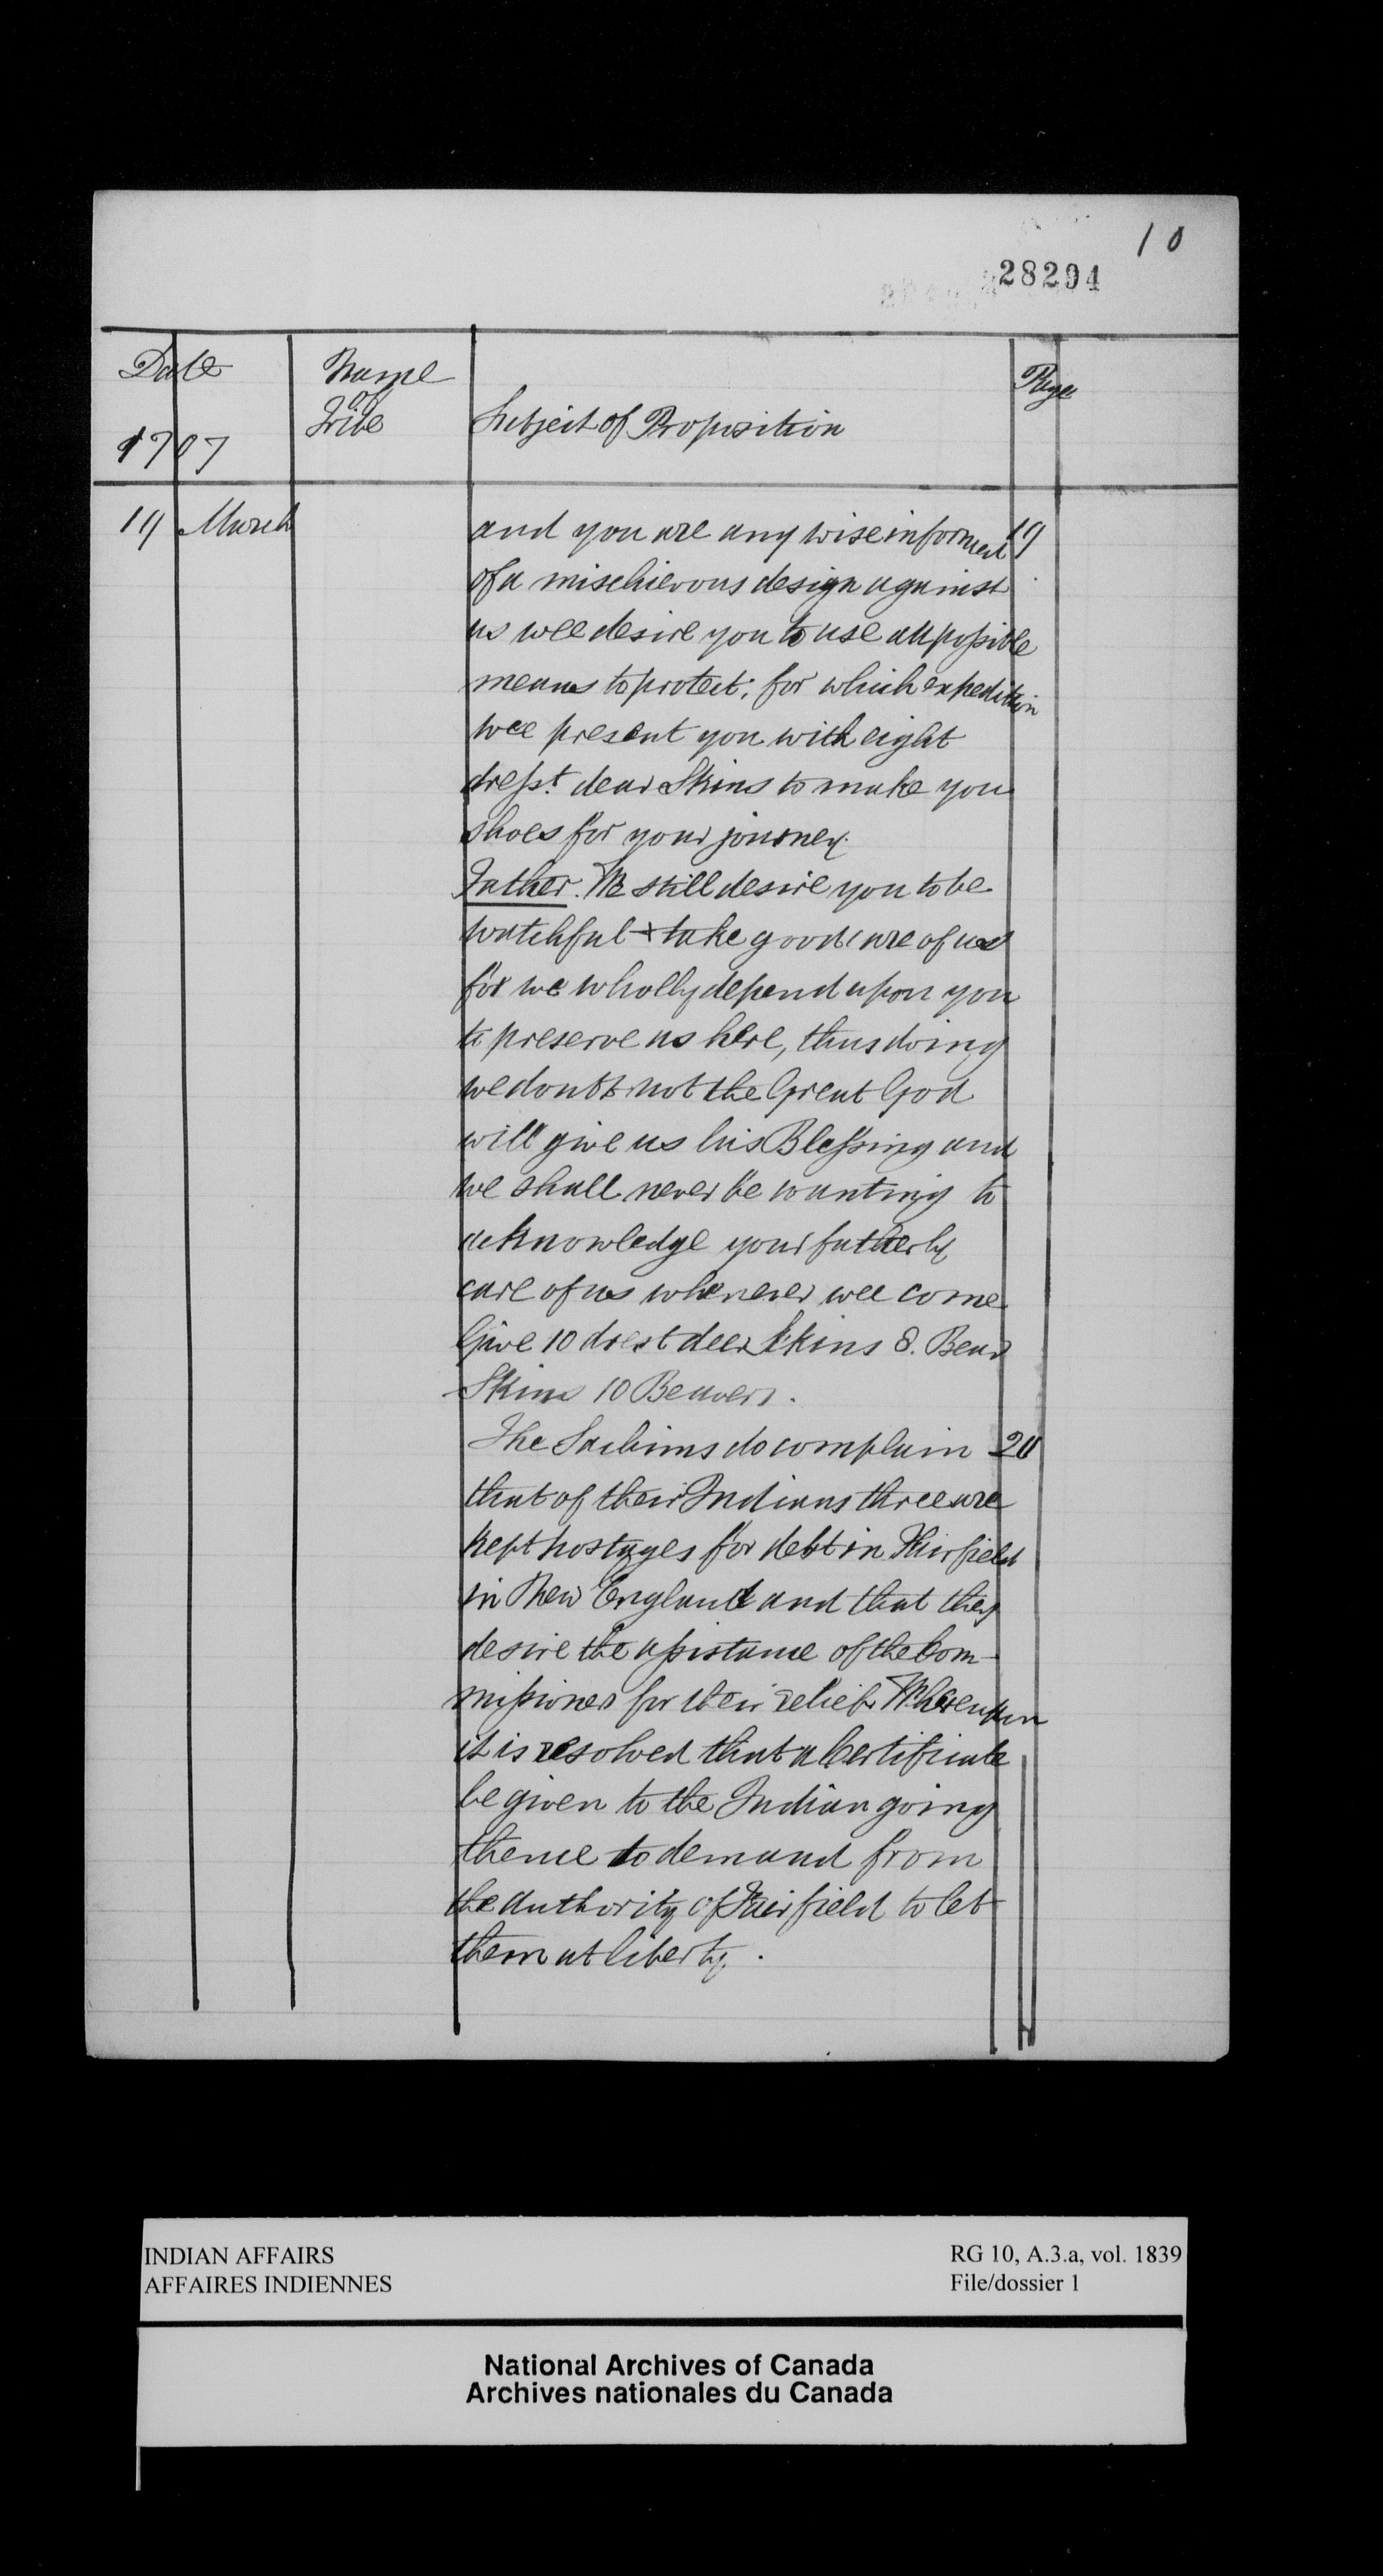 10
28294
Date
Name
of
Tribe
Subject of Proposition
Page
1707
19 March
and you are any wise informed 19
of a mischievous design against
us wee desire you to use all possible
means to protect; for which expedition
wee present you with eight
dresst dear Skins to make you
shoes for your journey.
Father. We still desire you to be
watchful & take good care of us
for we wholly depend upon you
to preserve us here, thus doing
we doubt not the Great God
will give us his Blessing and
we shall never be wanting to
acknowledge your fatherly
care of us whenever wee come
Give 10 drest deer Skins 8. Bear
Skins 10 Beavers.
The Sachims do complain 20
that of their Indians three are
kept hostages for debt in Fairfield
in New England and that they
desire the assistance of the Com-
missioner for their relief. Whereupon
it is resolved that a Certificate
be given to the Indian going
thence to demand from
the authority of Fairfield to let
them at liberty.
INDIAN AFFAIRS
AFFAIRES INDIENNES
RG 10, A.3.a, vol. 1839
File/dossier 1
National Archives of Canada
Archives nationales du Canada